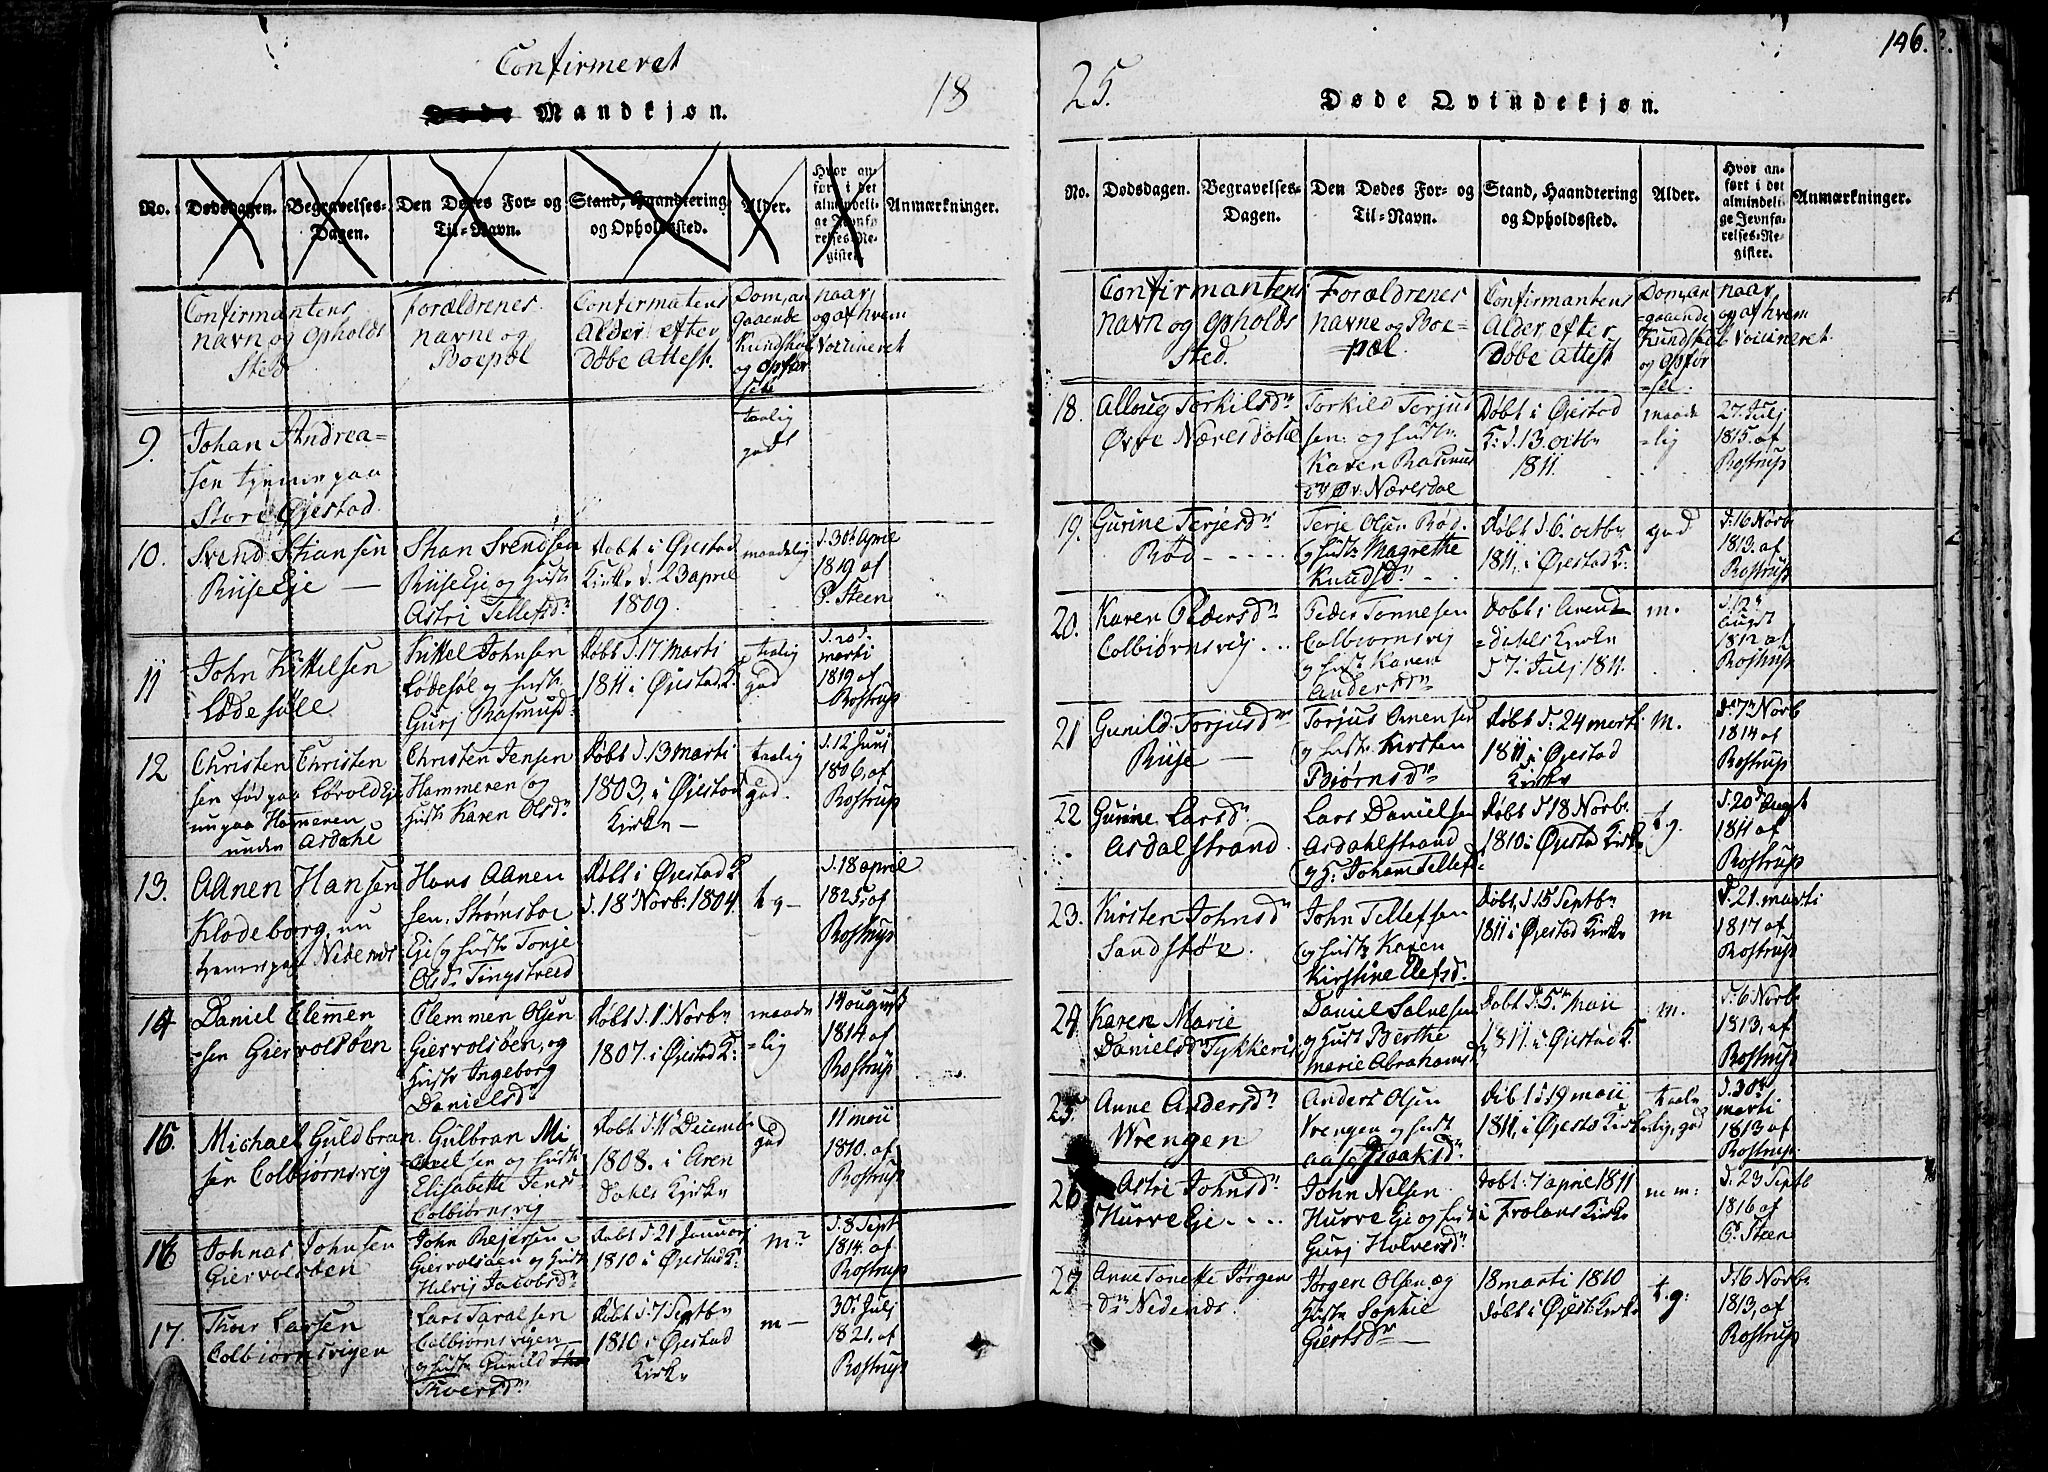 Confirmeret
18
Døde Mandkjøn.
No.
Dødsdagen.
Begravelses-
Dagen.
Den Dødes For- og
Til-Navn.
Stand, Haandtering
og Opholdssted.
Alder.
Hvor an-
ført i det
almindeli-
ge Jevnfø-
relses-Re-
gister.
Anmærkninger.
Confirmantens
navn og Opholds
Sted
forældrenes
navne og
Boepæl
Confirmatens
Alder efter
Døbe Attest.
Dom, an
gaaende
Kundskab
og opfør
sel
naar,
og af hvem
Vaccineret
9.
Johan Andrea=
sen tjener paa
Store Øiestad.
taalig
godt
10.
Svend Stiansen
RiiseEje —
Stian Svendsen
RiiseEje og hust:
Astri Tellefsd:
Døbt i Øiestad
Kirke d. 23 april
1809.
maadelig
d. 30t April
1819 af
P. Steen
11
John Kittelsen
Lødesølle
Kittel Johnsen
Lødesøl og hust:
Gurj Rasmusd.
Døbt d. 17 Marti
1811 i Øjestad K.
taalig
god
d. 20d.
marti
1819 af
Rostrup
12
Christen Christen
sen fød paa LøvoldEje
nu paa Hammeren
under Asdahl
Christen Jensen
Hammeren og
hust: Karen Olsd:
Døbt d. 13 Marti
1803, i Øjestad
Kirke —
taalig
god.
d. 12 Junj
1806, af
Rostrup
13.
Aanen Hansen
Klodeborg, nu
tjener paa Nedenes
Hans Aanen
sen, Strømsboe
Eje og hust: Tonje
Olsd: Tingstveed
Døbt i Øjestad K
d. 18 Norb: 1804.
t. g —
d. 18 april
1825, af
Rostrup
14
Daniel Clemmen
=sen Giervolsøen
Clemmen Olsen
Giervolsøen, og
Hust: Ingeborg
Danielsd:
Døbt d. 1 Norb:
1807. i Øjestad K:
maade
=lig
14 august
1814 af
Rostrup
15.
Michael Guldbran
sen Colbiørnsvig
Gulbran Mi
=kelsen og hust:
Elisabette Jensd
Colbiørnsvig
Døbt d. 11 Decemb:
1808. i Aren
Dahls Kirke
god
11 maii
1810. af
Rostrup
16
Johnas Johnsen
Giervolsøen
John Rejersen
Giervolsøen og hust
Helvig Jacobsd:
Døbt d. 21 Januarj
1810 i Øjestad K:
m:
d. 8 Sept
1814. af
Rostrup
17.
Thor Larsen
Colbiørnsvigen
Lars Taralsen
Colbiørnsvigen
og hust: Gunild
Thversd:
Døbt d. 7 Septb:
1810 i Øjestad
Kirke
m —
30 Julj
1821. af
Rostrup
25.
146.
Døde Qvindekjøn.
No.
Dødsdagen.
Begravelses-
Dagen.
Den Dødes For- og
Til-Navn.
Stand, Haandtering
og Opholdssted.
Alder.
Hvor an-
ført i det
almindeli-
ge Jevnfø-
relses-Re-
gister.
Anmærkninger.
Confirmantens
navn og Opholds
Sted.
Forældrenes
navne og Boe=
=pæl.
Confirmantens
Alder efter
Døbe Attest
Dom, an
=gaaende
Kundskab
og Opfør
=sel.
naar
og af hvem
Vaccineret
18.
Alloug Torkilsd:
Øvre Næresdahl
Torkild Terjus
sen: og hust:
Karen Rasmus
d: Øv: Næresdal
Døbt i Øiestad
K: d. 13. octb:
1811.
maade
=lig
27. Julj
1815. af
Rostrup
19.
Gurine Terjesd:
Rød - - - -
Terje Olsen Rød.
og hust: Magrethe
Knudsd: - -
Døbt d. 6. octb:
1811, i Øjestad K:
god
d. 16 Norb:
1813. af
Rostrup
20.
Karen Pedersd:
Colbiørnsvig . . .
Peder Tønnesen
Colbiørnsvig
og hust: Karen
Andersd:
Døbt i Arend
=dahls Kirke
d 7. Julj 1811.
m.
d. 12t
augt
1812 af
Rostrup
21
Gunild Torjusd:
Riise —
Torjus Omensen
og hust: Kirsten
Biørnsd:
Døbt d. 24 marti
1811, i Øjestad
Kirke
m.
d. 7 Norb
1814 af
Rostrup
22
Gurine Larsd:
Asdalstrand.
Lars Danielsen
Asdahlstrand
og H: Johanne Tellefsd:
Døbt d 18 Norb:
1810 i Øjestad Kirke
t. g.
d. 20d Augt
1811 af
Rostrup
23.
Kirsten Johnsd:
Sandstøe.
John Tellefsen
og hust: Karen
Kirstine Elefsd:
Døbt, d 15 Septb:
1811 i Øjestad Kirke
m
d. 21. marti
1817 af
Rostrup
24.
Karen Marie
Danielsd: Tykkeris
Daniel Salvesen
og hust Berthe
Marie Abrahamsd:
Døbt d. 5t maii
1811. i Øjestad K.
m.
d. 6 Norb:
1813, af
Rostrup
25.
Anne Andersd:
Wrengen
Anders Olsen
Vrengen og hust
Aase Isaaksd:
Døbt d 19 maii
1811, i Øjestd Kirke
taale
lig, god
d. 30t
marti
1813 af
Rostrup
26
Astri Johnsd:
HurveEje . . .
John Nilsen
Hurve Eje og hust
Gurj Halversd:
Døbt: 7 april 1811
i Frolans Kirke
m m:
d. 23 Septb
1816 af
P. Steen
27
Anne Tonette Jørgens
d: Nedenes.
Jørgen Olsen og
Hust: Sophie
Giertsd: —
18 marti 1810
Døbt i Øjest: Kirke
t. g:
d. 16 Norb:
1813, af
Rostrup